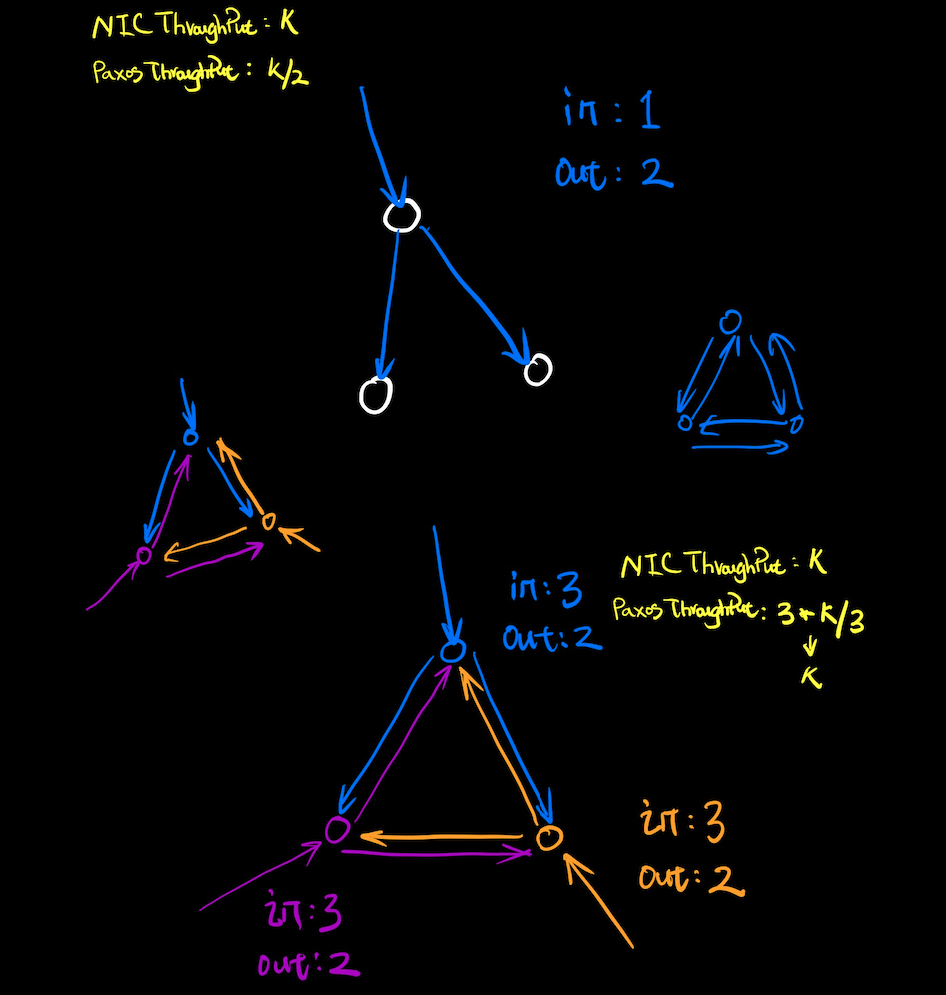 NIC ThroughPut: K
Paxos ThroughPut: K/2
in: 1
out: 2
in:3
out:2
NIC ThroughPut: K
Paxos ThroughPut: 3*K/3
K
in:3
out:2
in:3
out:2